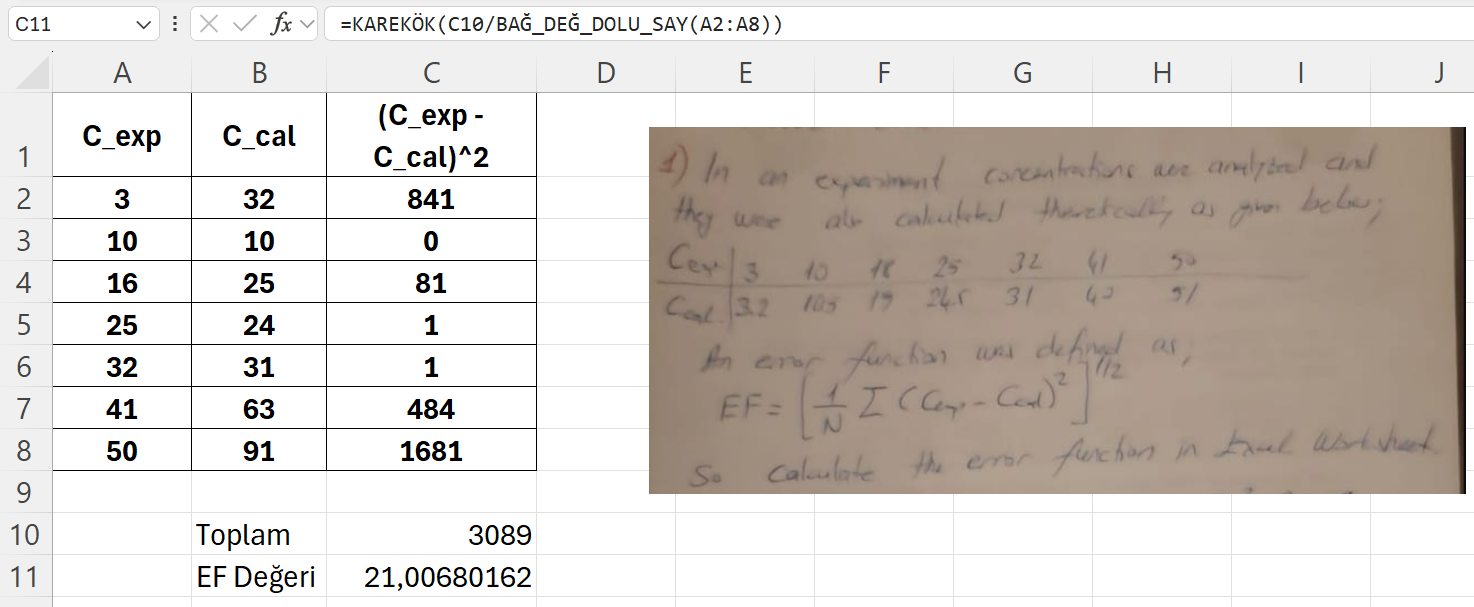 C11
fx
=KAREKÖK(C10/BAĞ_DEĞ_DOLU_SAY(A2:A8))
A B C D E F G H I J
1 C_exp C_cal (C_exp -
C_cal)^2
2 3 32 841
3 10 10 0
4 16 25 81
5 25 24 1
6 32 31 1
7 41 63 484
8 50 91 1681
9
10 Toplam 3089
11 EF Değeri 21,00680162
1) In an experiment concentrations are analyzed and
they were also calculated theoretically as given below;
Cexp 3 10 18 25 32 41 50
Ccal. 3.2 10.5 19 24.5 31 42 51
An error function was defined as,
EF = [1/N Σ (Cexp - Ccal)²]^1/2
So calculate the error function in Excel Worksheet.